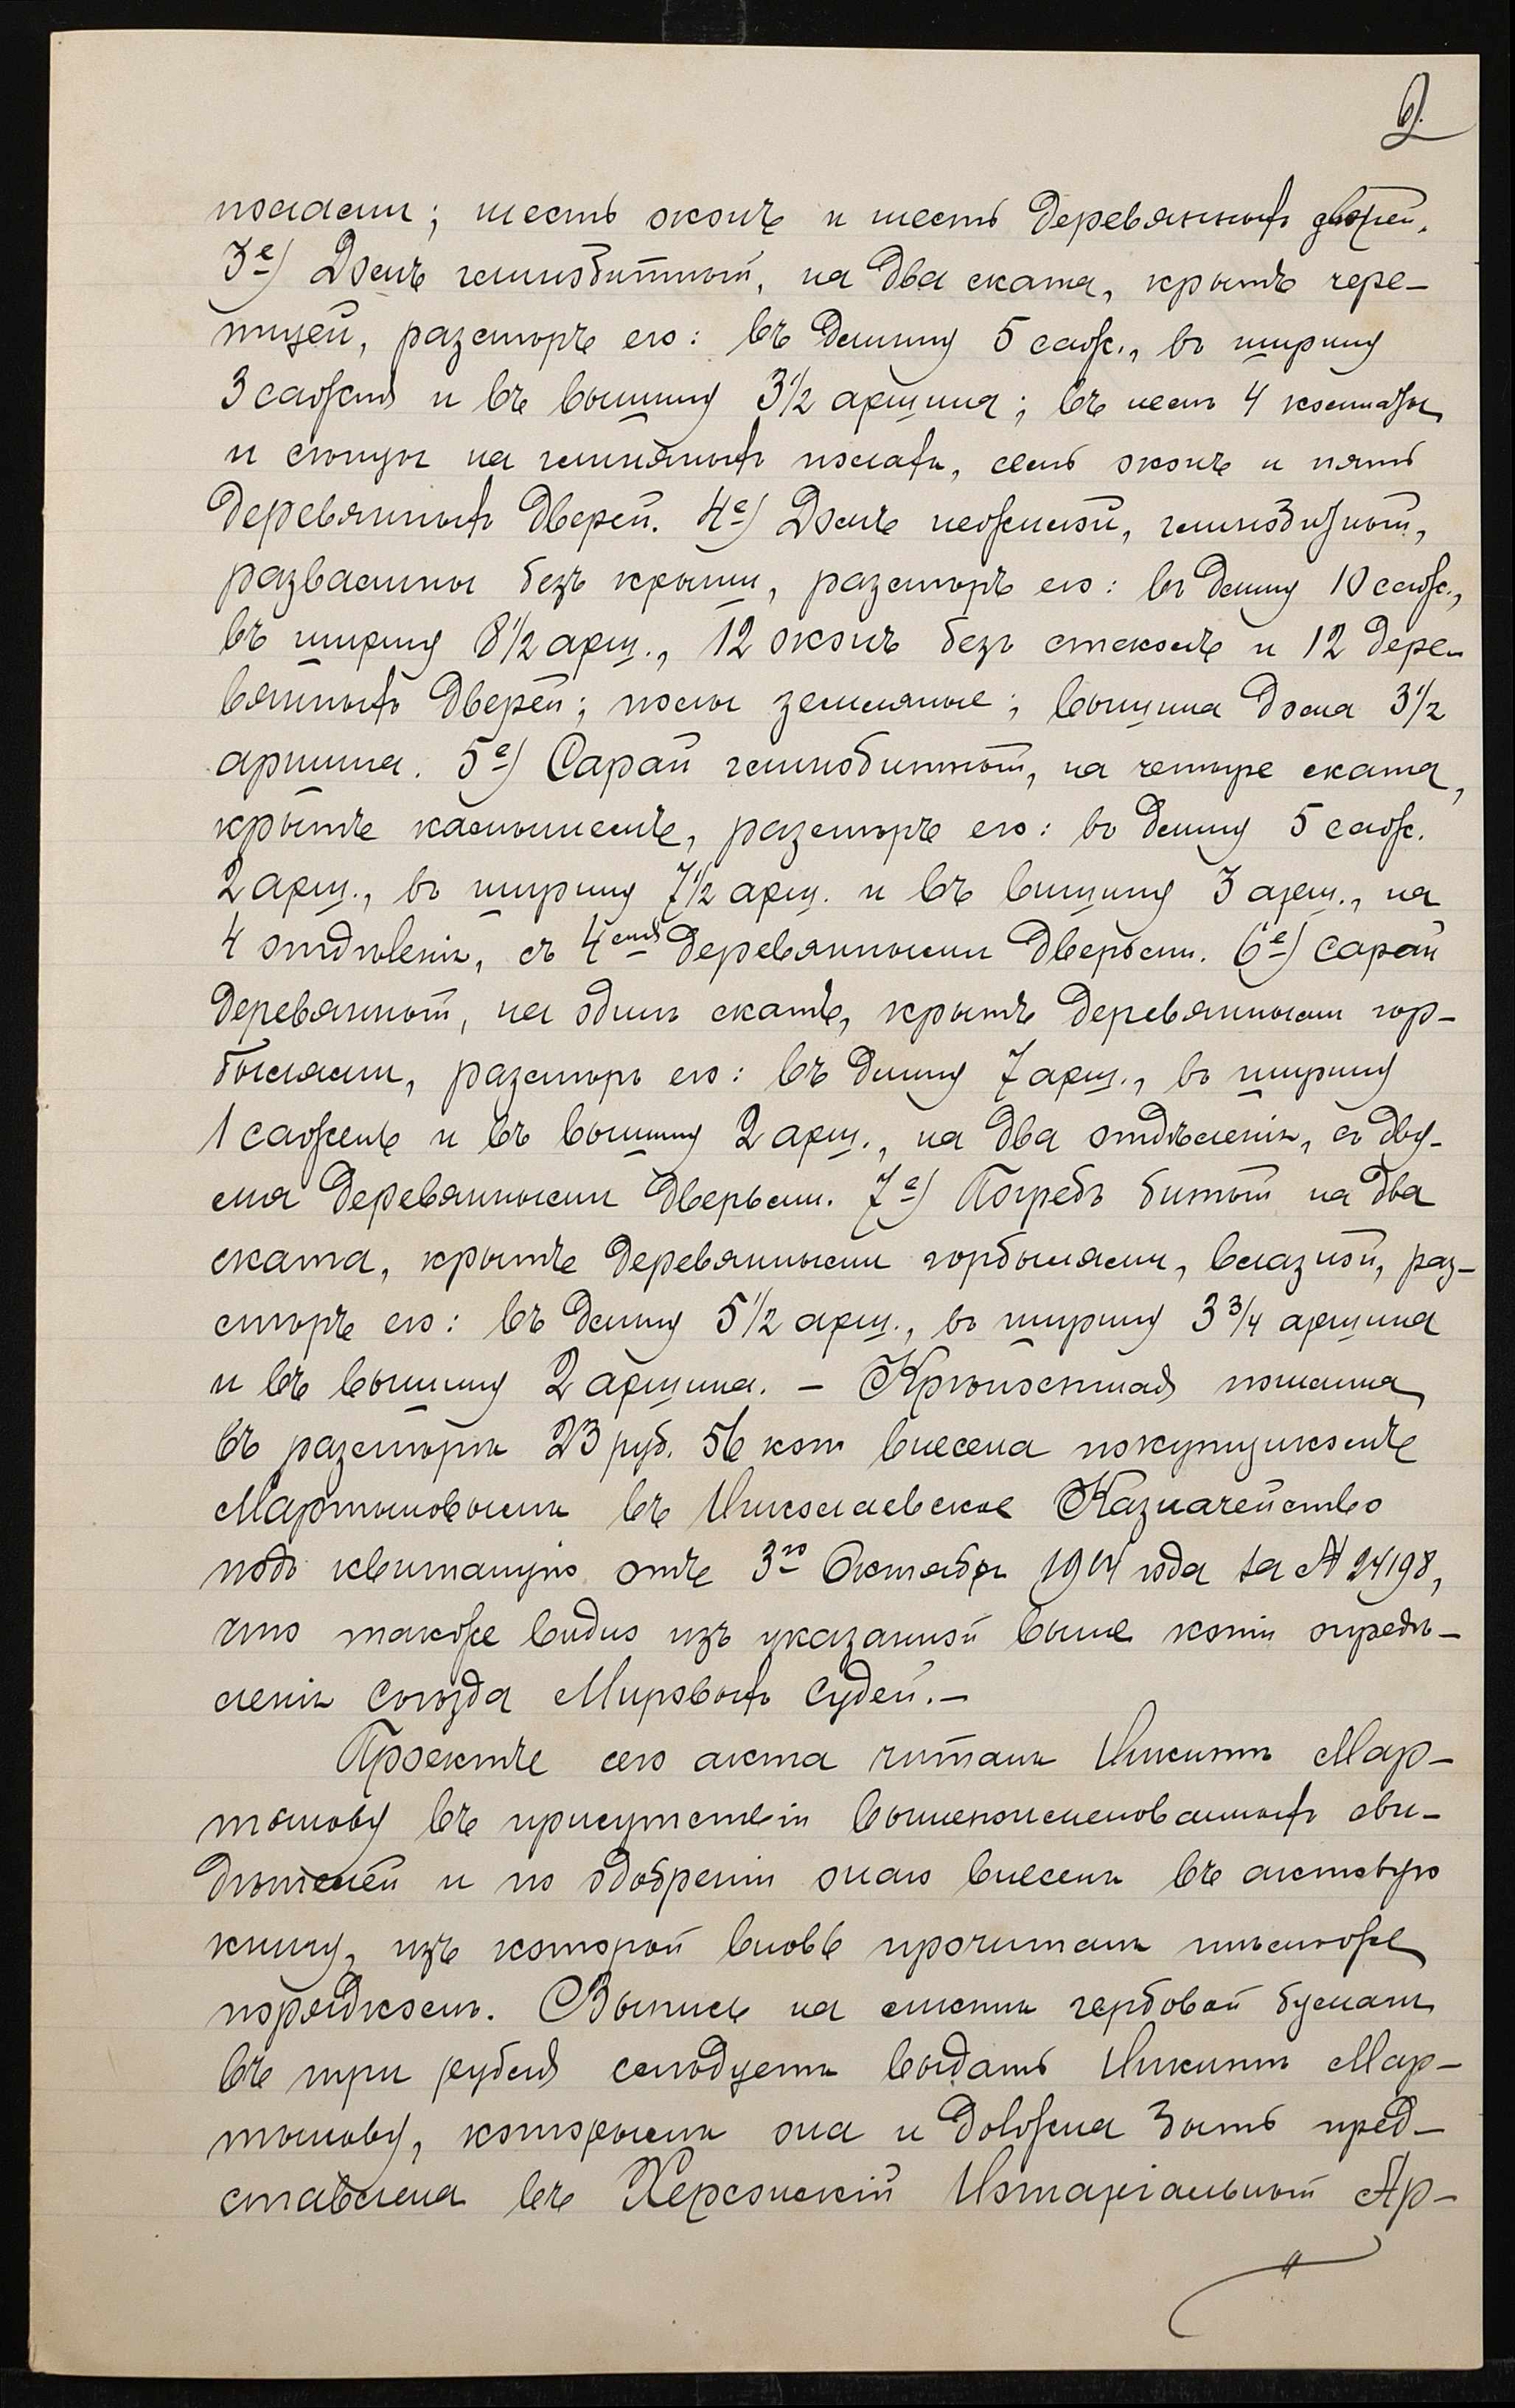 2.
полами; шесть оконъ и шесть деревянныхъ дверей.
3е) Домъ глинобитный, на два ската, крытъ чере-
пицей, размѣръ его: въ длину 5 саж., въ ширину
3 сажня и въ вышину 3½ аршина; въ немъ 4 комнаты
и сѣнцы на глиняныхъ полахъ, семь оконъ и пять
деревянныхъ дверей. 4е) Домъ нежилой, глинобитный,
развалины безъ крыши, размѣръ его: въ длину 10 саж.,
въ ширину 8½ арш., 12 оконъ безъ стеколъ и 12 дере-
вянныхъ дверей; полы земляные; вышина дома 3½
аршина. 5е) Сарай глинобитный, на четыре ската,
крытъ камышемъ, размѣръ его: въ длину 5 саж.
2 арш., въ ширину 7½ арш. и въ вышину 3 арш., на
4 отдѣленія, съ 4мя деревянными дверьми. 6е) Сарай
деревянный, на одинъ скатъ, крытъ деревянными гор-
былями, размѣръ его: въ длину 7 арш., въ ширину
1 сажень и въ вышину 2 арш., на два отдѣленія, съ дву-
мя деревянными дверьми. 7е) Погребъ битый на два
ската, крытъ деревянными горбылями, влазной, раз-
мѣръ его: въ длину 5½ арш., въ ширину 3¾ аршина
и въ вышину 2 аршина. – Крѣпостная пошлина
въ размѣрѣ 23 руб. 56 коп внесена покупщикомъ
Мартыновымъ въ Николаевское Казначейство
подъ квитанцію отъ 3го Октября 1904 года за № 24198,
что также видно изъ указанной выше копіи опредѣ-
ленія Съѣзда Мировыхъ Судей.–
Проектъ сего акта читанъ Никитѣ Мар-
тынову въ присутствіи вышепоименованныхъ сви-
дѣтелей и по одобреніи онаго внесенъ въ актовую
книгу, изъ которой вновь прочитанъ тѣмъ же
порядкомъ. Выпись на листѣ гербовой бумаги
въ три рубля слѣдуетъ выдать Никитѣ Мар-
тынову, которымъ она и должна быть пред-
ставлена въ Херсонскій Нотаріальный Ар-